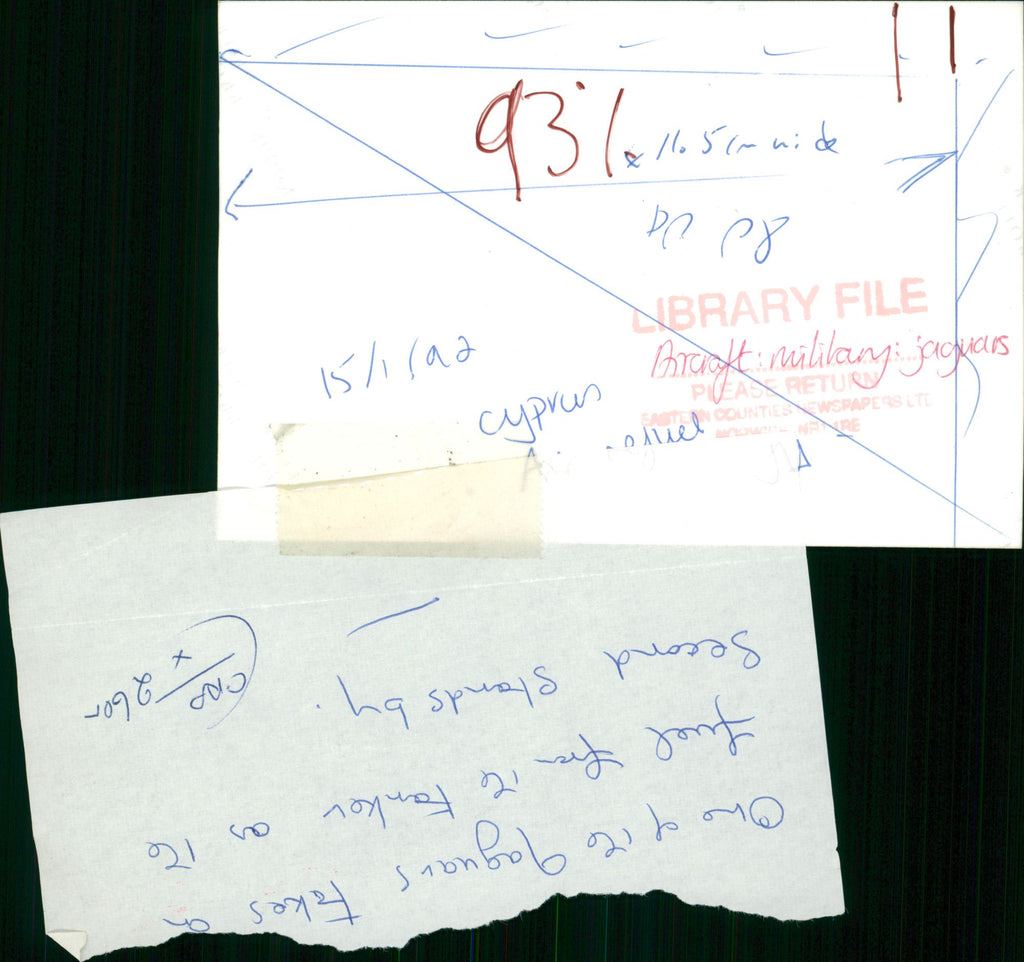 11
93%
x 16.5cm wide
LIBRARY FILE
Aircraft: military: jaguars
PLEASE RETURN
EASTERN COUNTIES NEWSPAPERS LTD
15/1/92
cyprus
One of the Jaguars takes on
fuel from the tanker as the
second stands by.